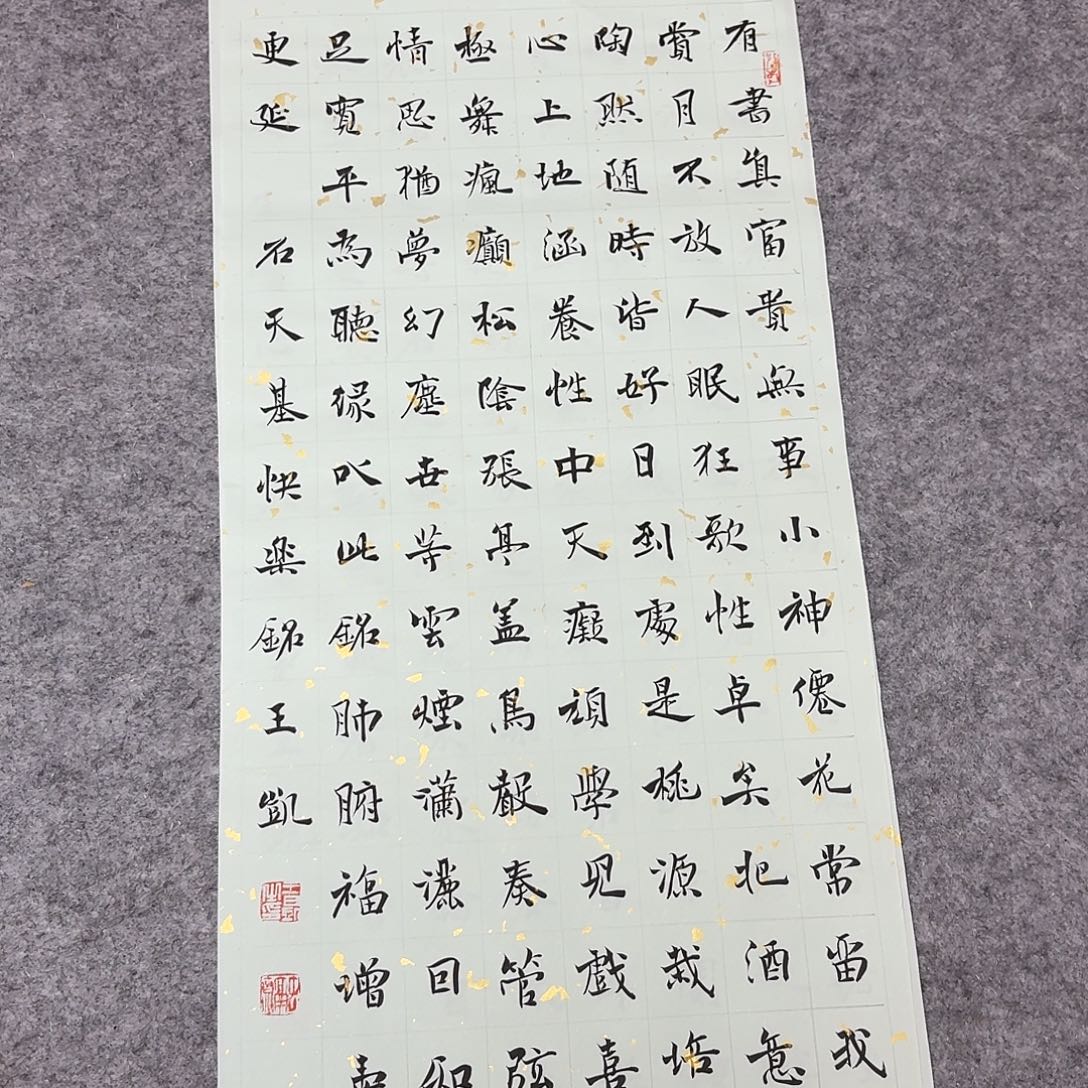 有書真富貴無事小神僊花常留我
賞月不放人眠狂歌性卓矣把酒意
陶然随時皆好日到處是桃源栽培
心上地涵養性中天癡頑學兒戲喜
極舞瘋癲松陰張亭盖鳥聲奏管弦
情思猶夢幻塵世等雲煙瀟灑回
足寬平為聽緣以此銘肺腑福增壽
更延 石天基快樂銘王凱